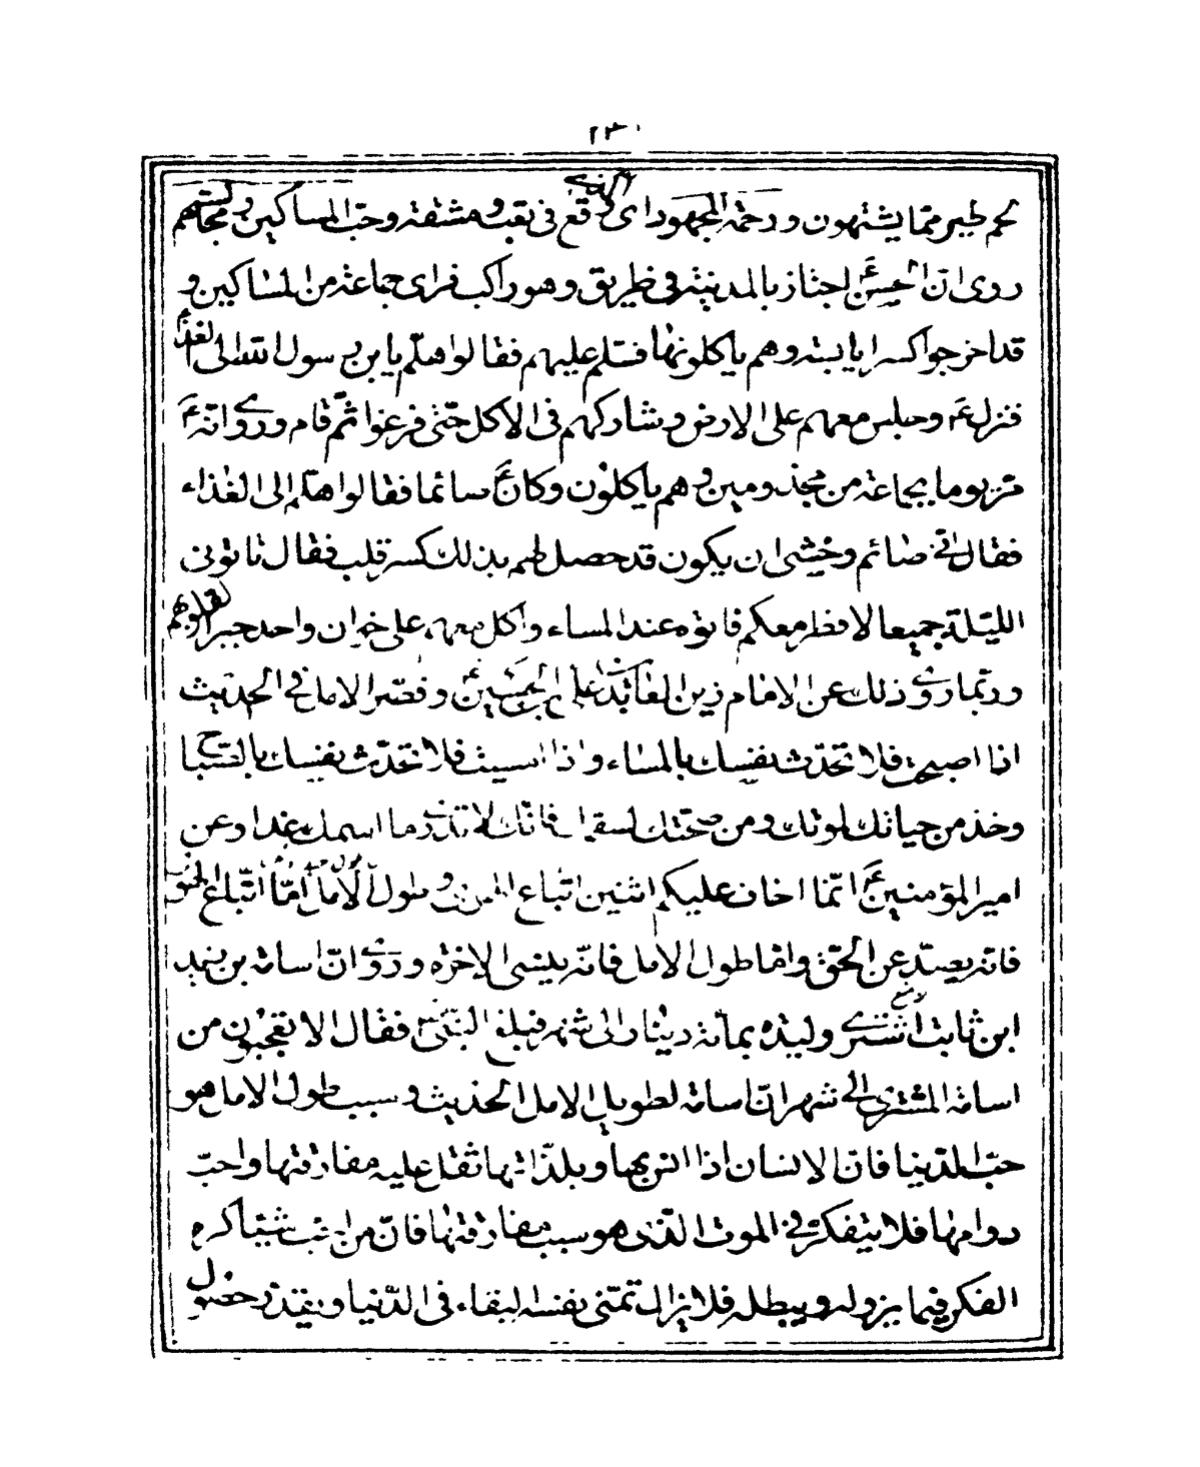 ١٣٠
لحم طير مما يشتهون ورحمة المجهود اى الذى وقع فى تعب ومشقة وحبّ المساكين ومجالستهم
روى ان الحسن ع اجتاز بالمدينة فى طريق وهو راكب فراى جماعة من المساكين و
قد اخرجوا كسرا يابسة وهم ياكلونها فسلم عليهم فقالوا هلم يابن رسول الله الى الغذاء
فنزل ع وجلس معهم على الارض وشاركهم فى الاكل حتى فرغوا ثم قام وروى انّه ع
مرّ يوما بجماعة من مجذومين وهم ياكلون وكان ع صائما فقالوا هلم الى الغذاء
فقال انى صائم وخشى ان يكون قد حصل لهم بذلك كسر قلب فقال تاتونى
الليلة جميعا لافطر معكم فاتوه عند المساء واكل معهم على خوان واحد جبرا لقلوبهم
وربما روى ذلك عن الامام زين العابدين على بن الحسين ع وقصر الامل فى الحديث
اذا اصبحت فلا تحدّث نفسك بالمساء واذا امسيت فلا تحدّث نفسك بالصباح
وخذ من حياتك لموتك ومن صحتك لسقمك فانّك لا تدرى ما اسمك غدا وعن
امير المؤمنين ع انّما اخاف عليكم اثنين اتباع الهوى وطول الامل امّا اتّباع الهوى
فانه يصدّ عن الحق وامّا طول الامل فانّه ينسى الاخرة وروى انّ اسامة بن زيد
ابن ثابت اشترى وليدة بمائة دينار الى شهر فبلغ النبى ص فقال الا تعجبون من
اسامة المشترى الى شهر انّ اسامة لطويل الامل الحديث وسبب طول الامل هو
حبّ الدّنيا فان الانسان اذا انس بها وبلذّاتها ثقل عليه مفارقتها واحبّ
دوامها فلا يتفكر فى الموت الّذى هو سبب مفارقتها فانّ من احبّ شيئا كره
الفكر فيما يزوله ويبطله فلا يزال تمنّى نفسه البقاء فى الدّنيا ويقدّر حصول